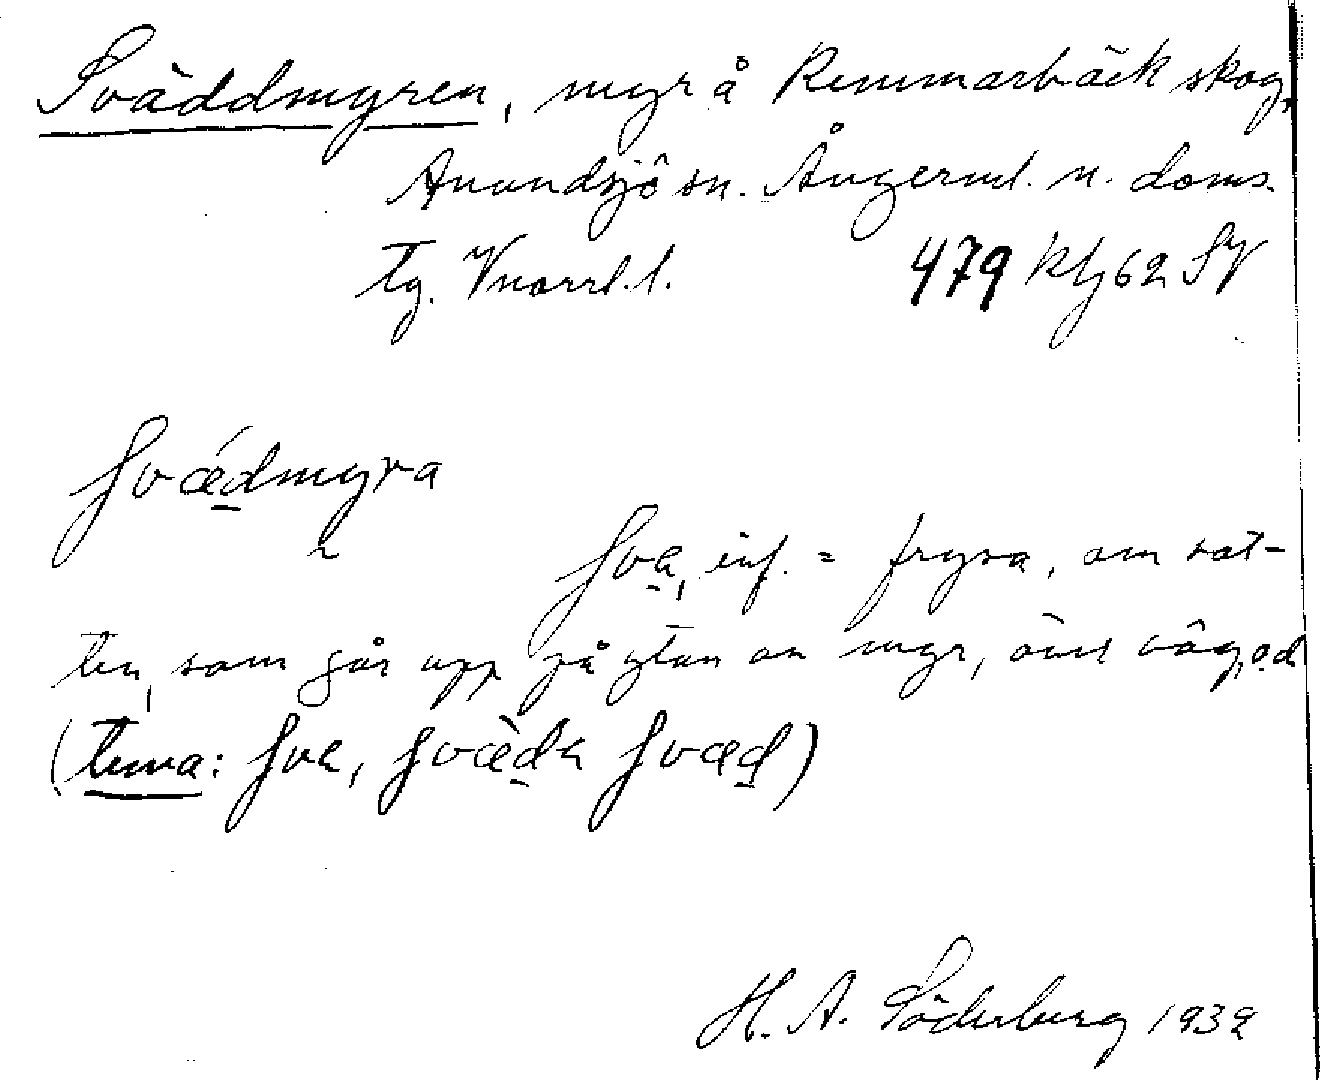 Sväddmyren, myr å Remmarbäck skog,
Anundsjö sn. Ångerml. n. doms.
tg. Vnorrl. l. 479 Klj 62 SV
svǽdmyra
sve, inf. = frysa, om vat-
ten, som går upp på ytan av myr,
(tema: sve, svædε svæd)
H. A. Söderberg 1939